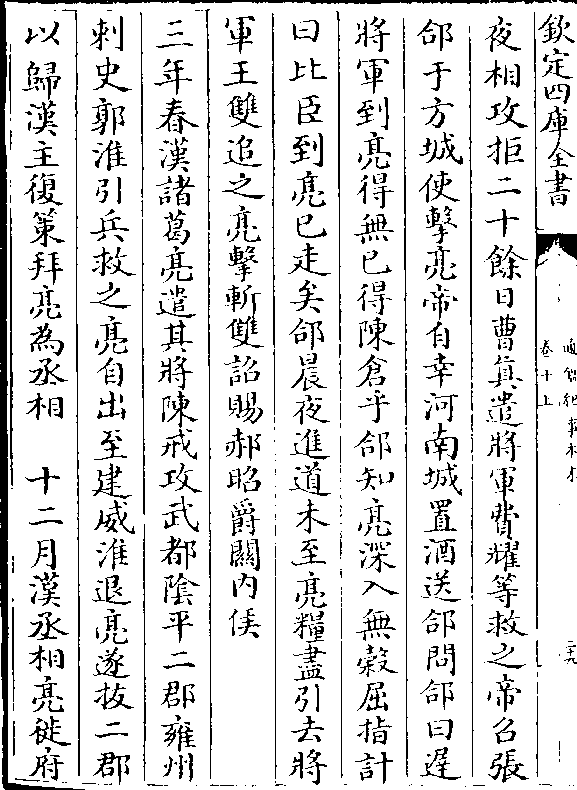 欽定四庫全書
通鑑紀事本末
卷十上
二九
夜相攻拒二十餘日曹真遣將軍費耀等救之帝召張
郃于方城使擊亮帝自幸河南城置酒送郃問郃曰遲
將軍到亮得無已得陳倉乎郃知亮深入無穀屈指計
曰比臣到亮已走矣郃晨夜進道未至亮糧盡引去將
軍王雙追之亮擊斬雙詔賜郝昭爵關內侯
三年春漢諸葛亮遣其將陳戒攻武都陰平二郡雍州
刺史郭淮引兵救之亮自出至建威淮退亮遂拔二郡
以歸漢主復策拜亮為丞相　十二月漢丞相亮徙府